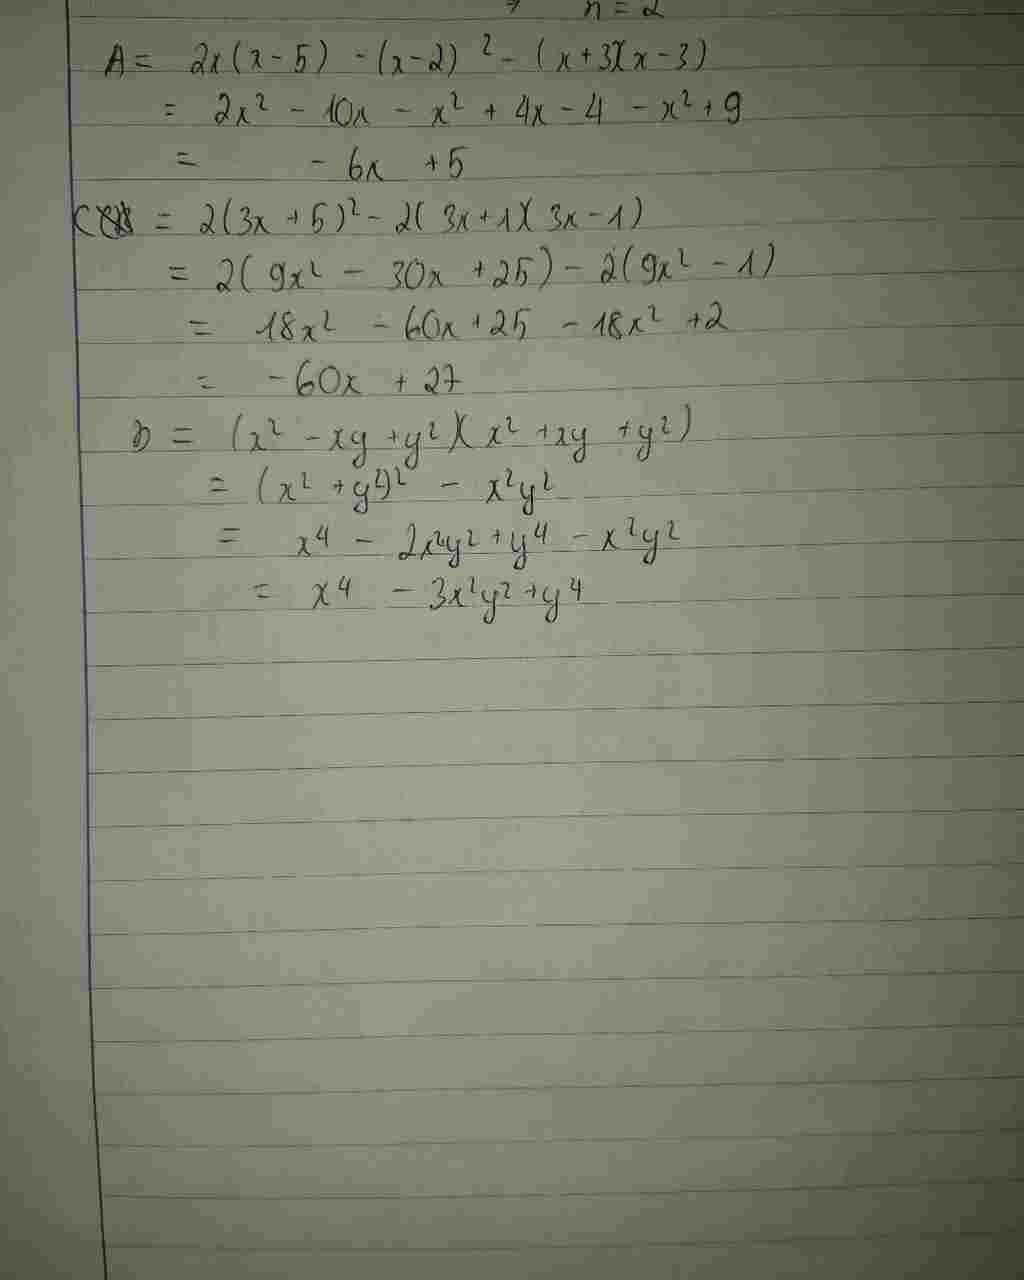 n = 2
A = 2x(x-5) - (x-2)² - (x+3)(x-3)
= 2x² - 10x - x² + 4x - 4 - x² + 9
= - 6x + 5
C = 2(3x + 5)² - 2(3x+1)(3x-1)
= 2(9x² - 30x + 25) - 2(9x² - 1)
= 18x² - 60x + 25 - 18x² + 2
= -60x + 27
D = (x² - xy + y²)(x² + xy + y²)
= (x² + y²)² - x²y²
= x⁴ - 2x²y² + y⁴ - x²y²
= x⁴ - 3x²y² + y⁴